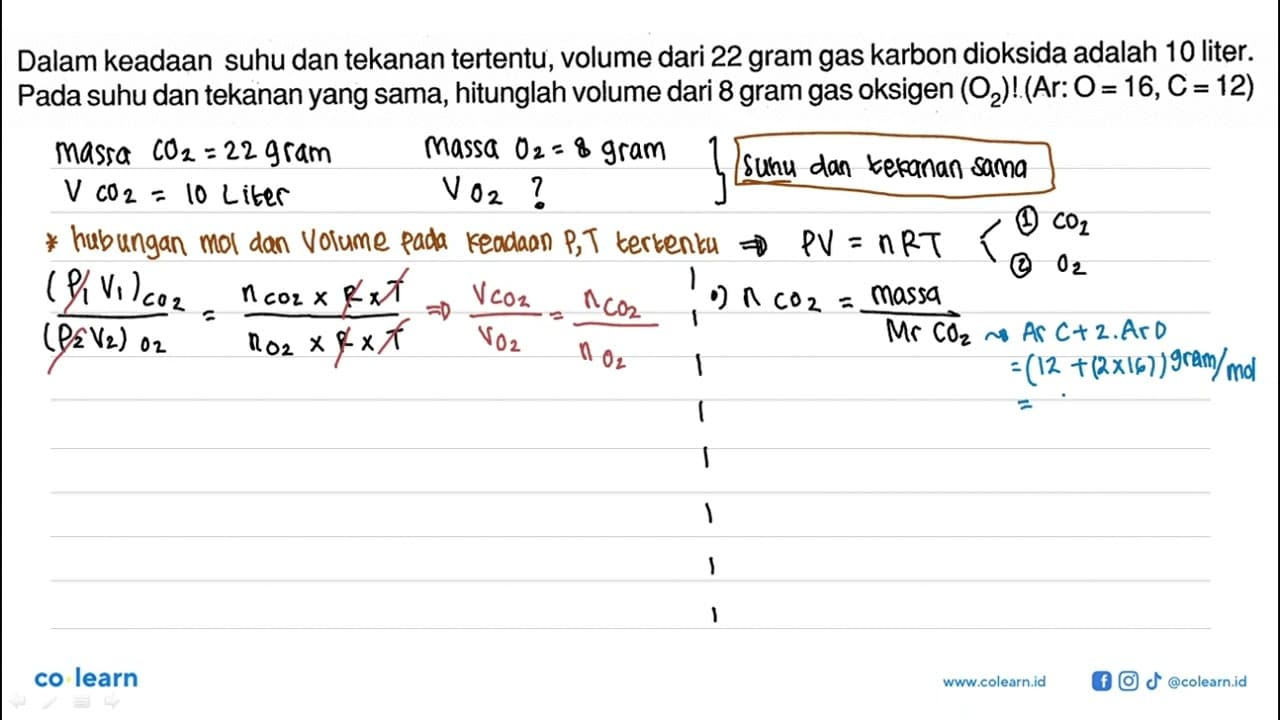 Dalam keadaan suhu dan tekanan tertentu, volume dari 22 gram gas karbon dioksida adalah 10 liter.
Pada suhu dan tekanan yang sama, hitunglah volume dari 8 gram gas oksigen (O₂)! (Ar: O = 16, C = 12)
massa CO₂ = 22 gram
V CO₂ = 10 Liter
massa O₂ = 8 gram
V O₂ ?
suhu dan tekanan sama
* hubungan mol dan Volume pada keadaan P,T tertentu ⇒ PV = nRT
① CO₂
② O₂
(P₁ V₁) CO₂ / (P₂ V₂) O₂ = n CO₂ x R x T / n O₂ x R x T ⇒ V CO₂ / V O₂ = n CO₂ / n O₂
•) n CO₂ = massa / Mr CO₂ → Ar C + 2. Ar O
= (12 + (2 x 16)) gram/mol
=
co learn
www.colearn.id
@colearn.id